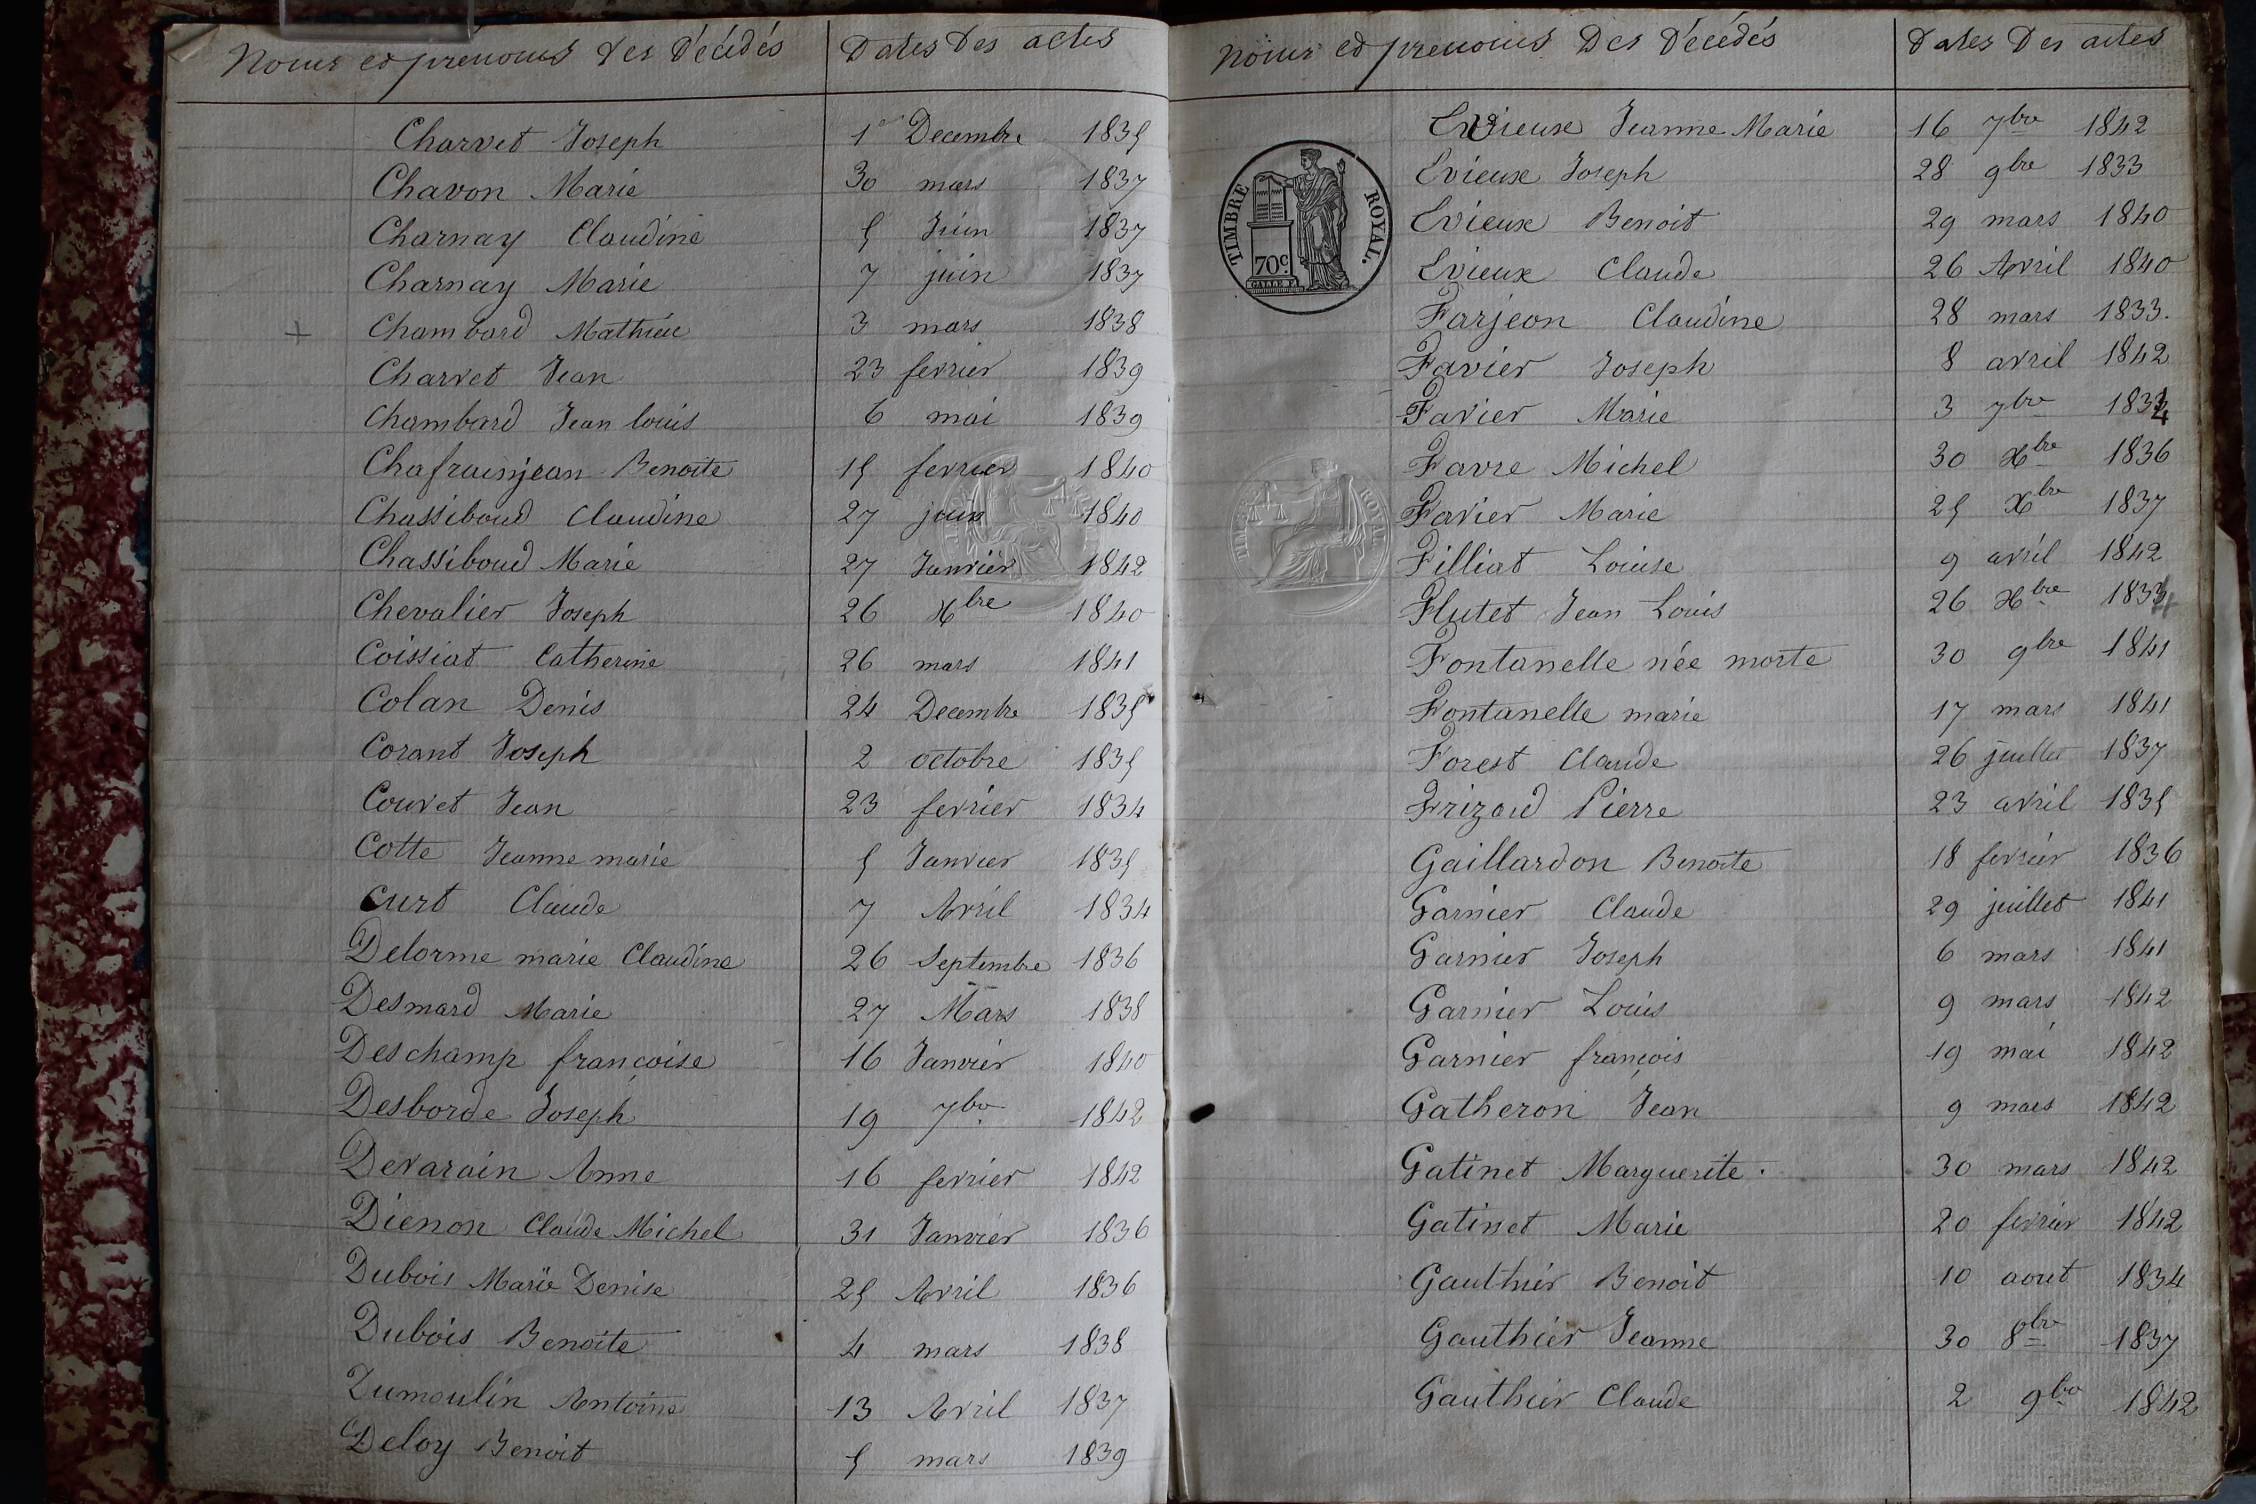 Noms et prénoms des Décédés Dates Des actes
Charvet Joseph 1er Decembre 1835
Chavon Marie 30 mars 1837
Charnay Claudine 5 Juin 1837
Charnay Marie 7 juin 1837
+ Chambard Mathieu 3 mars 1838
Charvet Jean 23 fevrier 1839
Chambard Jean louis 6 mai 1839
Chafrainjean Benoite 15 fevrier 1840
Chassiboud Claudine 27 juin 1840
Chassiboud Marie 27 Janvier 1842
Chevalier Joseph 26 Xbre 1840
Coissiat Catherine 26 mars 1841
Colan Denis 24 Decembre 1835
Corant Joseph 2 octobre 1835
Couvet Jean 23 fevrier 1834
Cotte Jeanne marie 5 Janvier 1835
Curt Claude 7 Avril 1834
Delorme marie Claudine 26 Septembre 1836
Desmard Marie 27 Mars 1838
Deschamp françoise 16 Janvier 1840
Desborde Joseph 19 7bre 1842
Devarain Anne 16 fevrier 1842
Dienon Claude Michel 31 Janvier 1836
Dubois Marie Denise 25 Avril 1836
Dubois Benoite 4 mars 1838
Dumoulin Antoine 13 Avril 1837
Deloy Benoit 5 mars 1839
Noms et prenoms Des Décédés Dates Des actes
Evieux Jeanne Marie 16 7bre 1842
Evieux Joseph 28 9bre 1833
Evieux Benoit 29 mars 1840
Evieux Claude 26 Avril 1840
TIMBRE ROYAL.
70c.
Farjeon Claudine 28 mars 1833.
Favier Joseph 8 avril 1842
Favier Marie 3 7bre 1834
Favre Michel 30 Xbre 1836
Favier Marie 25 Xbre 1837
Filliat Louise 9 avril 1842
Flutet Jean Louis 26 Xbre 1834
Fontanelle née morte 30 9bre 1841
Fontanelle marie 17 mars 1841
Forest Claude 26 juillet 1837
Frizard Pierre 23 avril 1835
Gaillardon Benoite 18 fevrier 1836
Garnier Claude 29 juillet 1841
Garnier Joseph 6 mars 1841
Garnier Louis 9 mars 1842
Garnier françois 19 mai 1842
Gatheron Jean 9 mars 1842
Gatinet Marguerite. 30 mars 1842
Gatinet Marie 20 fevrier 1842
Gauthier Benoit 10 aout 1834
Gauthier Jeanne 30 8bre 1837
Gauthier Claude 2 9bre 1842